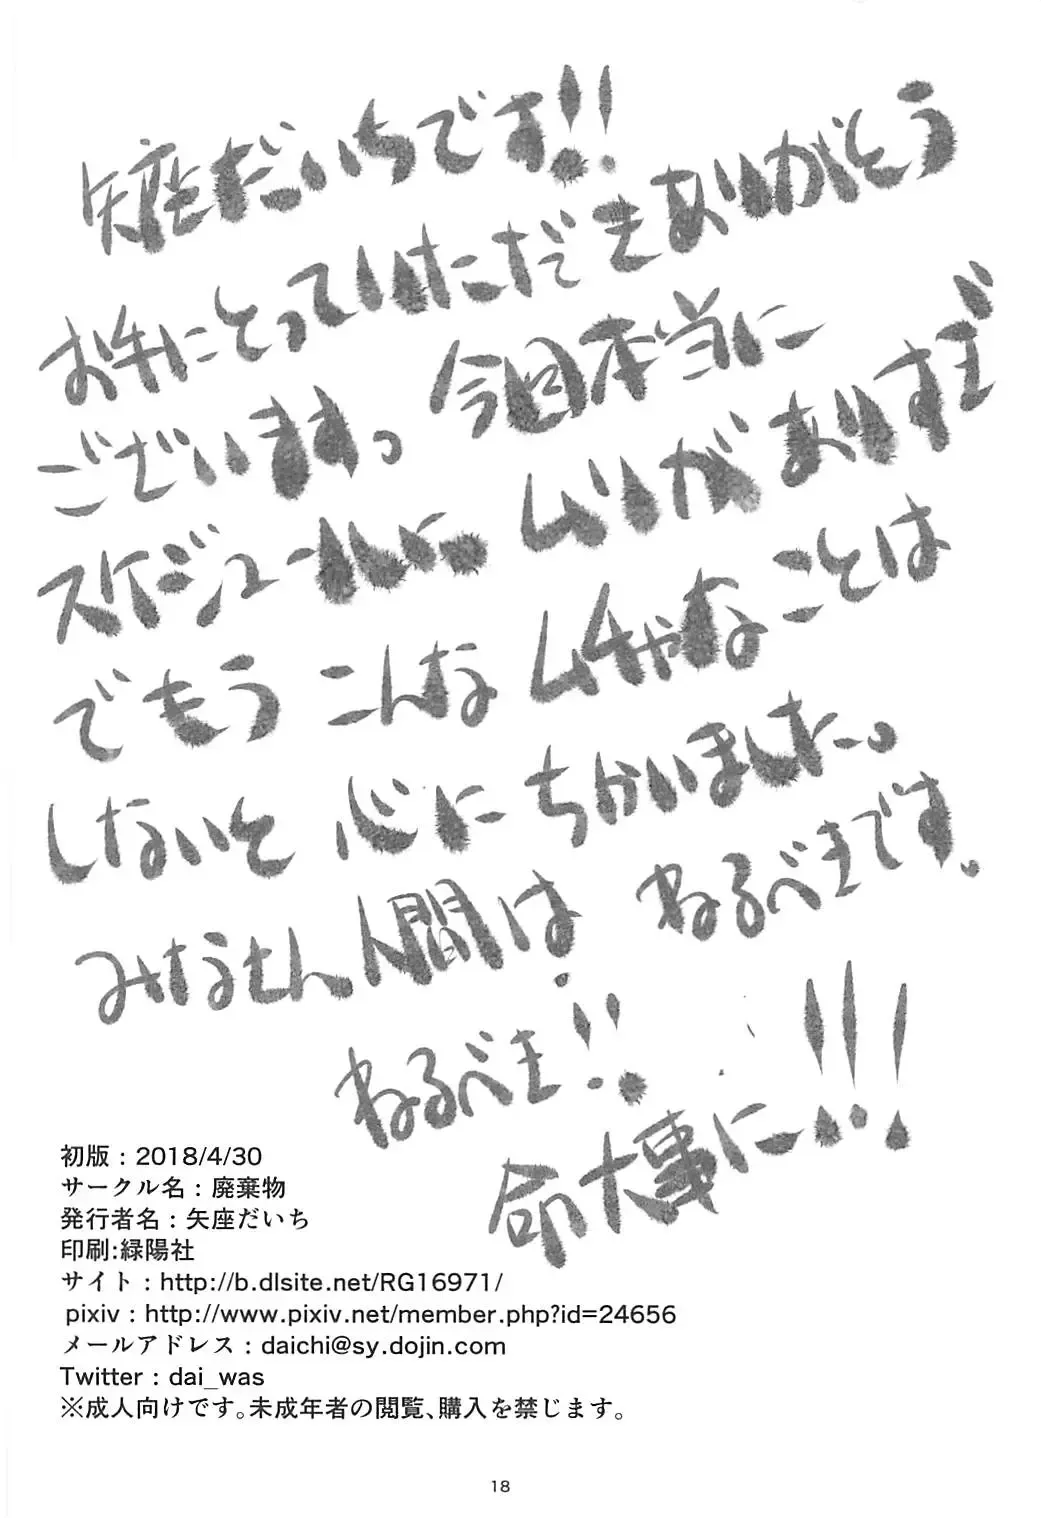 矢座だいちです!!
お手にとっていただきありがとう
ございます。今回本当に
スケジュールに、ムリがありすぎ
でもう こんなムチャなことは
しないと 心に ちかいました。
みなさん人間は ねるべきです。
ねるべき!!
命大事に…!!!
初版：2018/4/30
サークル名：廃棄物
発行者名：矢座だいち
印刷:緑陽社
サイト：http://b.dlsite.net/RG16971/
pixiv：http://www.pixiv.net/member.php?id=24656
メールアドレス：daichi@sy.dojin.com
Twitter：dai_was
※成人向けです。未成年者の閲覧、購入を禁じます。
18